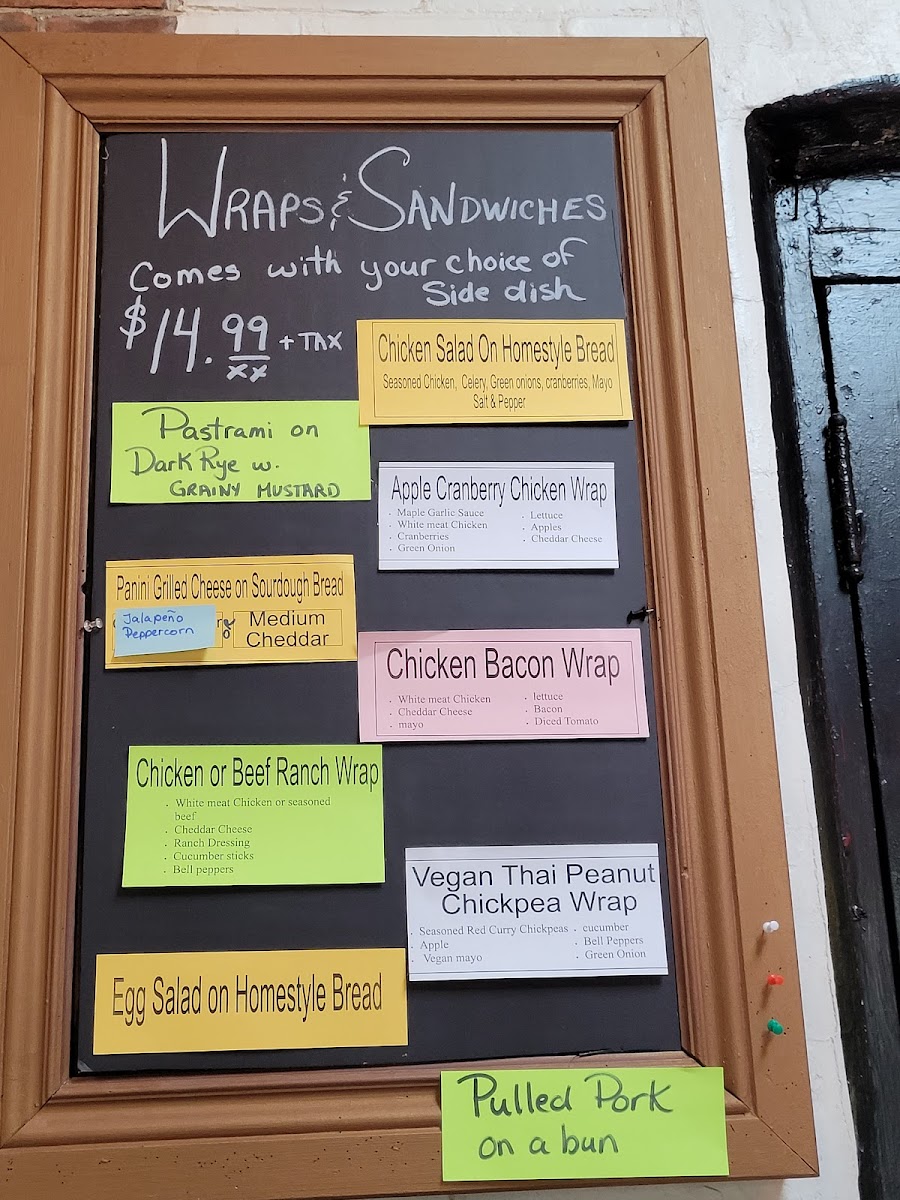 WRAPS & SANDWICHES
Comes with your choice of
Side dish
$14.99 + TAX
xx
Chicken Salad On Homestyle Bread
Seasoned Chicken, Celery, Green onions, cranberries, Mayo
Salt & Pepper
Pastrami on
Dark Rye w.
GRAINY MUSTARD
Apple Cranberry Chicken Wrap
· Maple Garlic Sauce
· White meat Chicken
· Cranberries
· Green Onion
· Lettuce
· Apples
· Cheddar Cheese
Panini Grilled Cheese on Sourdough Bread
Jalapeño
Peppercorn
Medium
Cheddar
Chicken Bacon Wrap
· White meat Chicken
· Cheddar Cheese
· mayo
· lettuce
· Bacon
· Diced Tomato
Chicken or Beef Ranch Wrap
· White meat Chicken or seasoned
beef
· Cheddar Cheese
· Ranch Dressing
· Cucumber sticks
· Bell peppers
Vegan Thai Peanut
Chickpea Wrap
· Seasoned Red Curry Chickpeas
· Apple
· Vegan mayo
· cucumber
· Bell Peppers
· Green Onion
Egg Salad on Homestyle Bread
Pulled Pork
on a bun